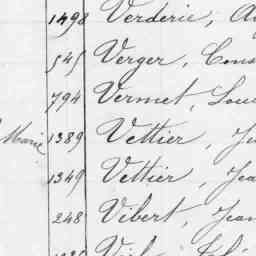 1498 Verderie,
545 Verger, Cons
794 Vermet, Loui
Marie
1389 Vettier, Ju
1349 Vettier, Jea
248 Vibert, Jean